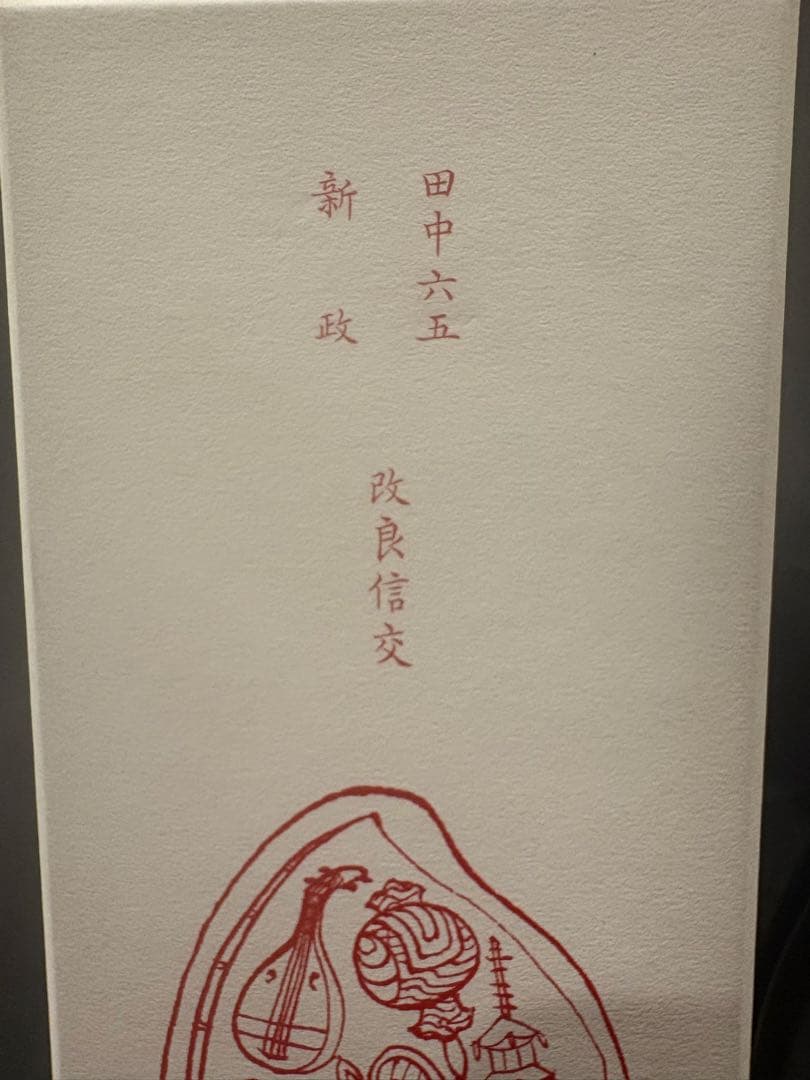 田中六五
新政
改良信交